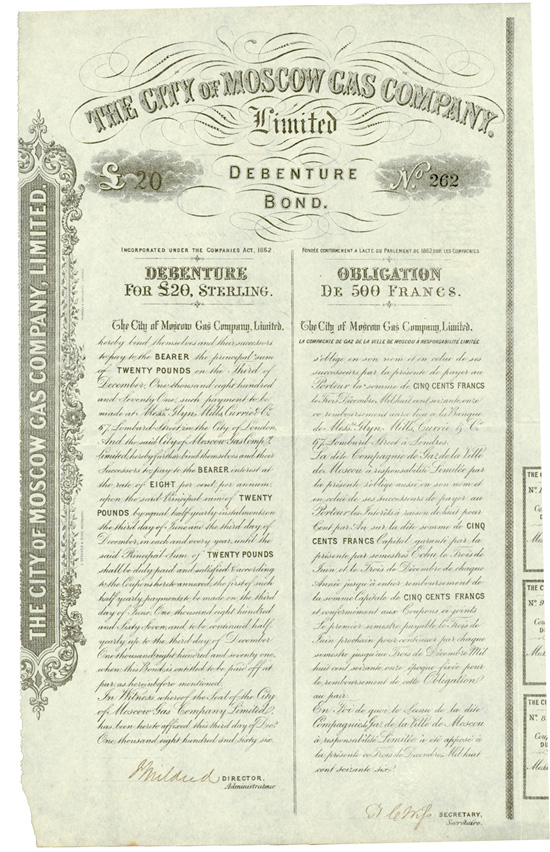 THE CITY OF MOSCOW GAS COMPANY, LIMITED.
THE CITY OF MOSCOW GAS COMPANY.
Limited
£ 20
DEBENTURE
BOND.
No. 262
INCORPORATED UNDER THE COMPANIES ACT, 1862
DEBENTURE
FOR £20, STERLING.
The City of Moscow Gas Company, Limited.
hereby bind themselves and their successors
to pay to the BEARER the principal sum
of TWENTY POUNDS on the Third of
December, One thousand eight hundred
and Seventy One, such payment to be
made at Messrs. Glyn, Mills, Currie & Co.
67, Lombard Street in the City of London.
And the said City of Moscow Gas Compy.
Limited, hereby further bind themselves and their
Successors to pay to the BEARER interest at
the rate of EIGHT per cent. per annum
upon the said Principal sum of TWENTY
POUNDS by equal half yearly instalments on
the third day of June and the third day of
December, in each and every year, until the
said Principal Sum of TWENTY POUNDS
shall be duly paid and satisfied & according
to the Coupons hereto annexed, the first of such
half yearly payments to be made on the third
day of June, One thousand eight hundred
and Sixty Seven, and to be continued half-
yearly up to the third day of December
One thousand eight hundred and seventy one,
when this Bond is entitled to be paid off at
par, as herein before mentioned.
In Witness whereof the Seal of the City
of Moscow Gas Company Limited,
has been hereto affixed this third day of Decr.
One thousand eight hundred and sixty six.
DIRECTOR.
Administrateur
FONDÉE CONFORMEMENT A L'ACTE DU PARLEMENT DE 1862 SUR LES COMPAGNIES
OBLIGATION
DE 500 FRANCS.
The City of Moscow Gas Company, Limited.
LA COMPAGNIE DE GAZ DE LA VILLE DE MOSCOU À RESPONSABILITÉ LIMITÉE
s'oblige en son nom et en celui de ses
successeurs par la présente de payer au
Porteur la somme de CINQ CENTS FRANCS
le Trois Décembre, Mil huit cent soixante onze
ce remboursement aura lieu à la Banque
de Messrs. Glyn, Mills, Currie & Co.
67, Lombard Street à Londres.
La dite Compagnie de Gaz de la Ville
de Moscou à responsabilité Limitée par
la présente s'oblige aussi en son nom et
en celui de ses successeurs de payer au
Porteur les Intérêts à raison de huit pour
Cent par An sur la dite somme de CINQ
CENTS FRANCS Capital, garanti par la
présente par semestres Echus le Trois de
Juin et le Trois de Décembre de chaque
Année jusqu'à entier remboursement de
la somme Capitale de CINQ CENTS FRANCS
et conformément aux Coupons ci-joints
Le premier semestre payable le Trois de
Juin prochain pour continuer par chaque
semestre jusqu'au Trois de Décembre Mil
huit cent soixante onze époque fixée pour
le remboursement de cette Obligation
au pair.
En Foi de quoi le Sceau de la dite
Compagnie de Gaz de la Ville de Moscou
à responsabilité Limitée a été apposé à
la présente ce Trois de Décembre, Mil huit
cent soixante six.
SECRETARY,
Secrétaire.